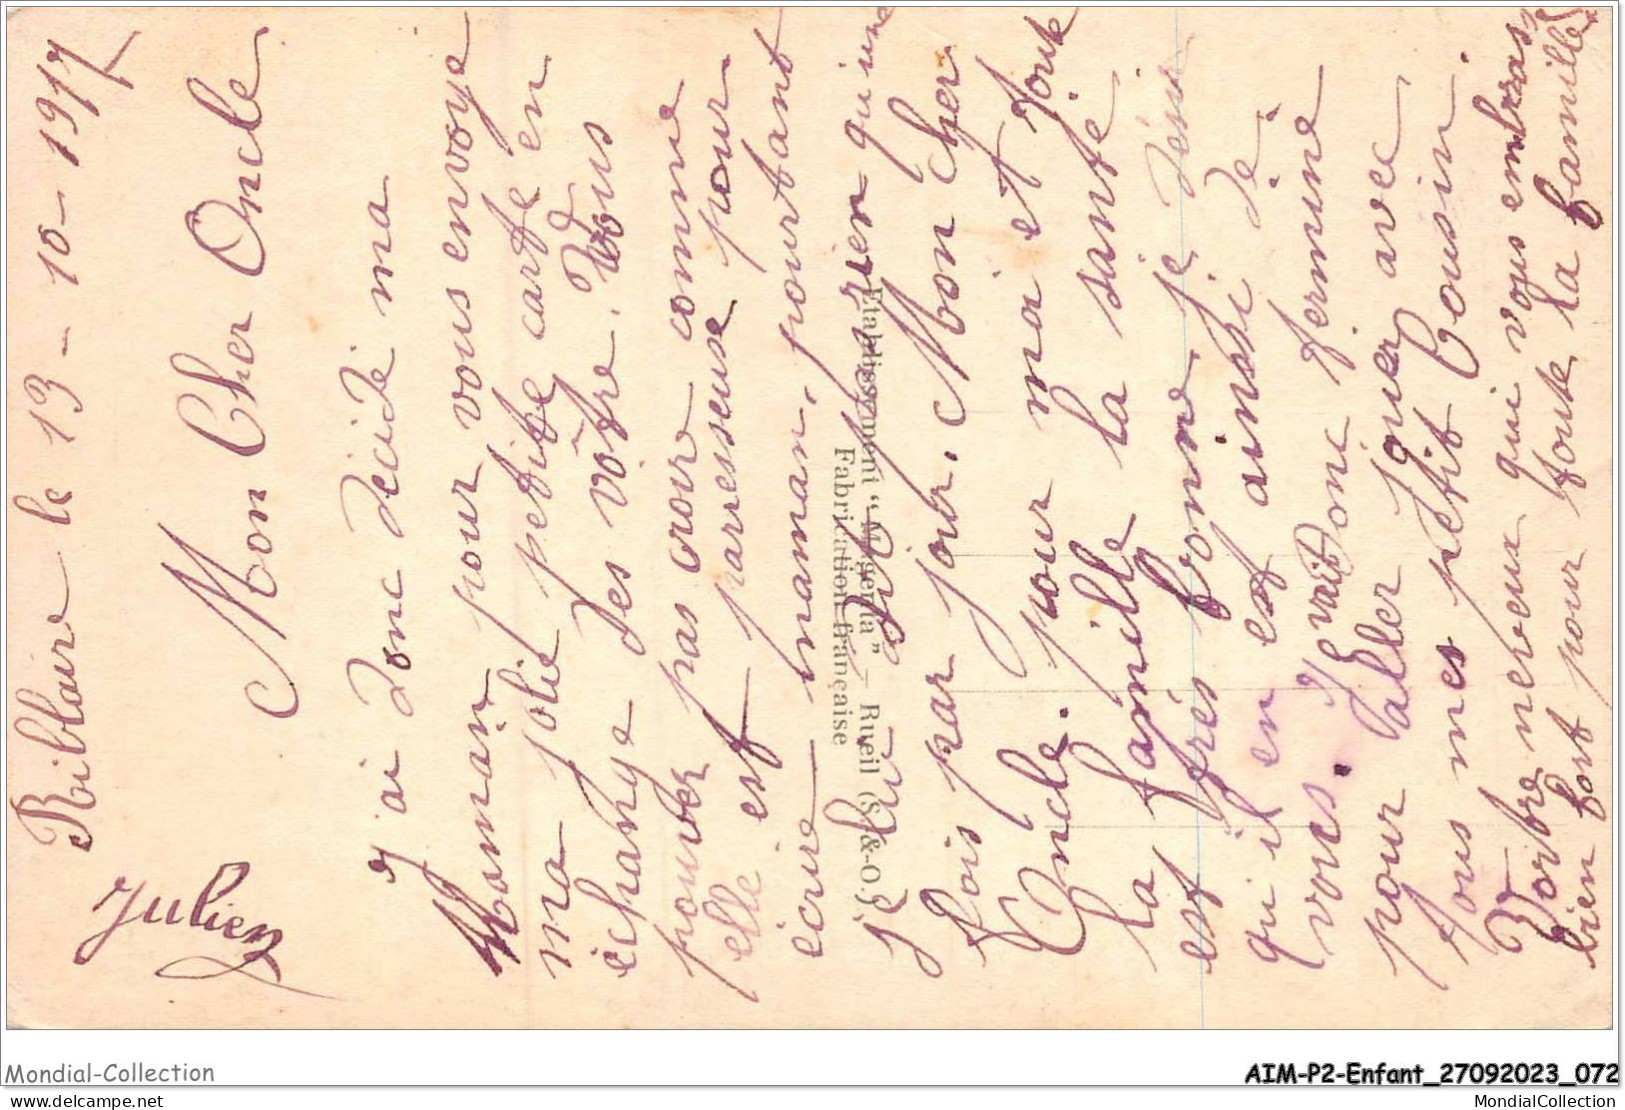 Riblaire le 13-10-1917
Mon Cher Oncle
j'ai donc décidé ma
Maman pour vous envoye
ma jolie petite carte en
échange des vôtre. Vous
pouvez pas croire comme
elle est parresseuse pour
écrire maman, pourtant
je lui dit rien qu'une
fois par jour. Mon cher
Oncle. pour ma et toute
la famille la santé
est très bonne je
qu'il en est ainssi de
vous. donc fermine
pour aller jouer avec
tous mes petit Cousin.
Vortre neveux qui vous embrass
bien fort pour toute la famille
Julien
Etablissement "Magenta" - Rueil (S.-&-O.)
Fabrication française
Mondial-Collection
AIM-P2-Enfant_27092023_072
delcampe.net
MondialCollection